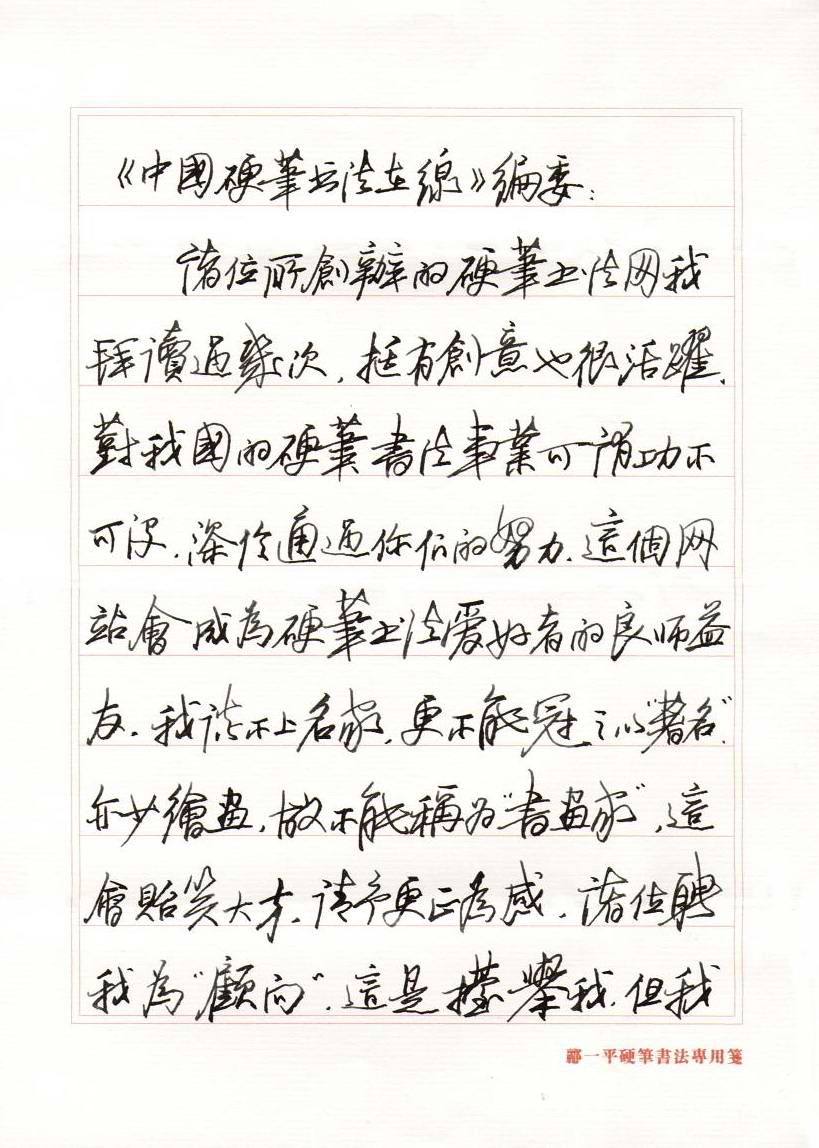 《中國硬筆书法在線》編委：
諸位所創辦的硬筆书法网我
拜讀過幾次，挺有創意也很活躍，
對我國的硬筆書法事業可謂功不
可沒，深信通過你们的努力，這個网
站會成為硬筆书法爱好者的良师益
友。我談不上名家，更不能冠之以"著名"，
亦少繪畫，故不能稱为"書畫家"，這
會貽笑大方，请予更正為感。諸位聘
我為"顧问"，這是擡舉我，但我
鄒一平硬筆書法專用箋